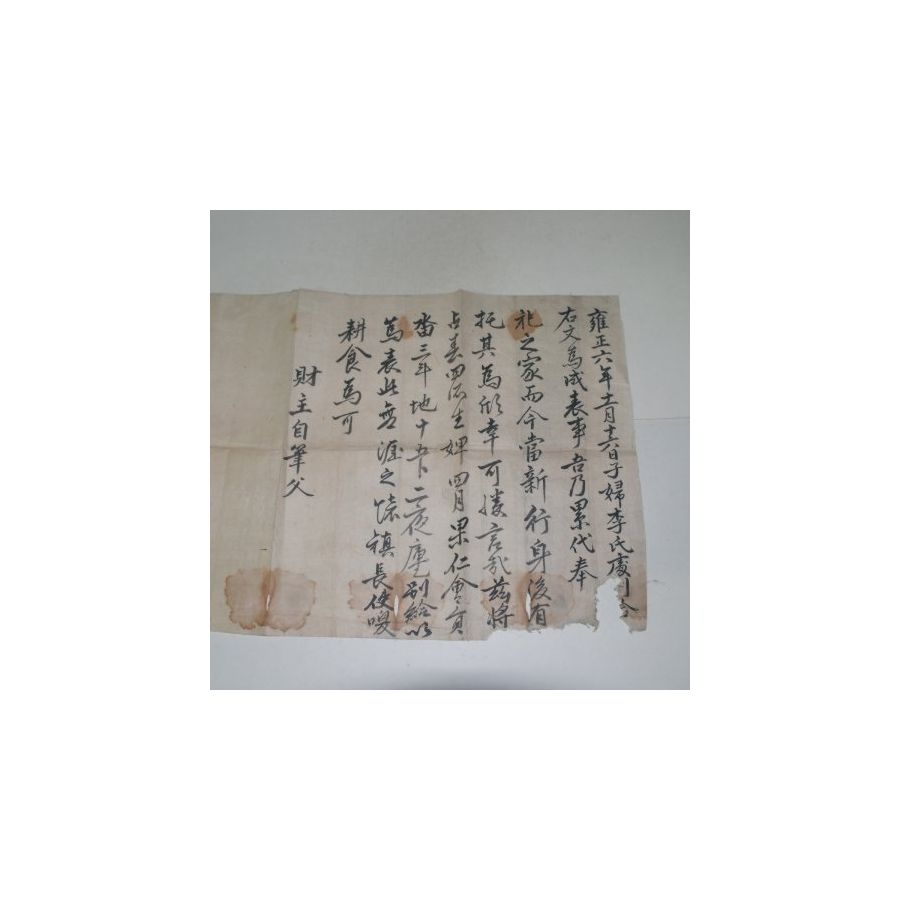 雍正六年十二月十六日子婦李氏處別
右文爲成表事吾乃累代奉
祀之家而今當新行身後有
托其爲欣幸可勝言哉玆將
占春四所生婢四月果仁會員
畓三斗地十五卜二夜庫別給以
爲表此無涯之懷禛長使喫
耕食爲可
財主自筆父